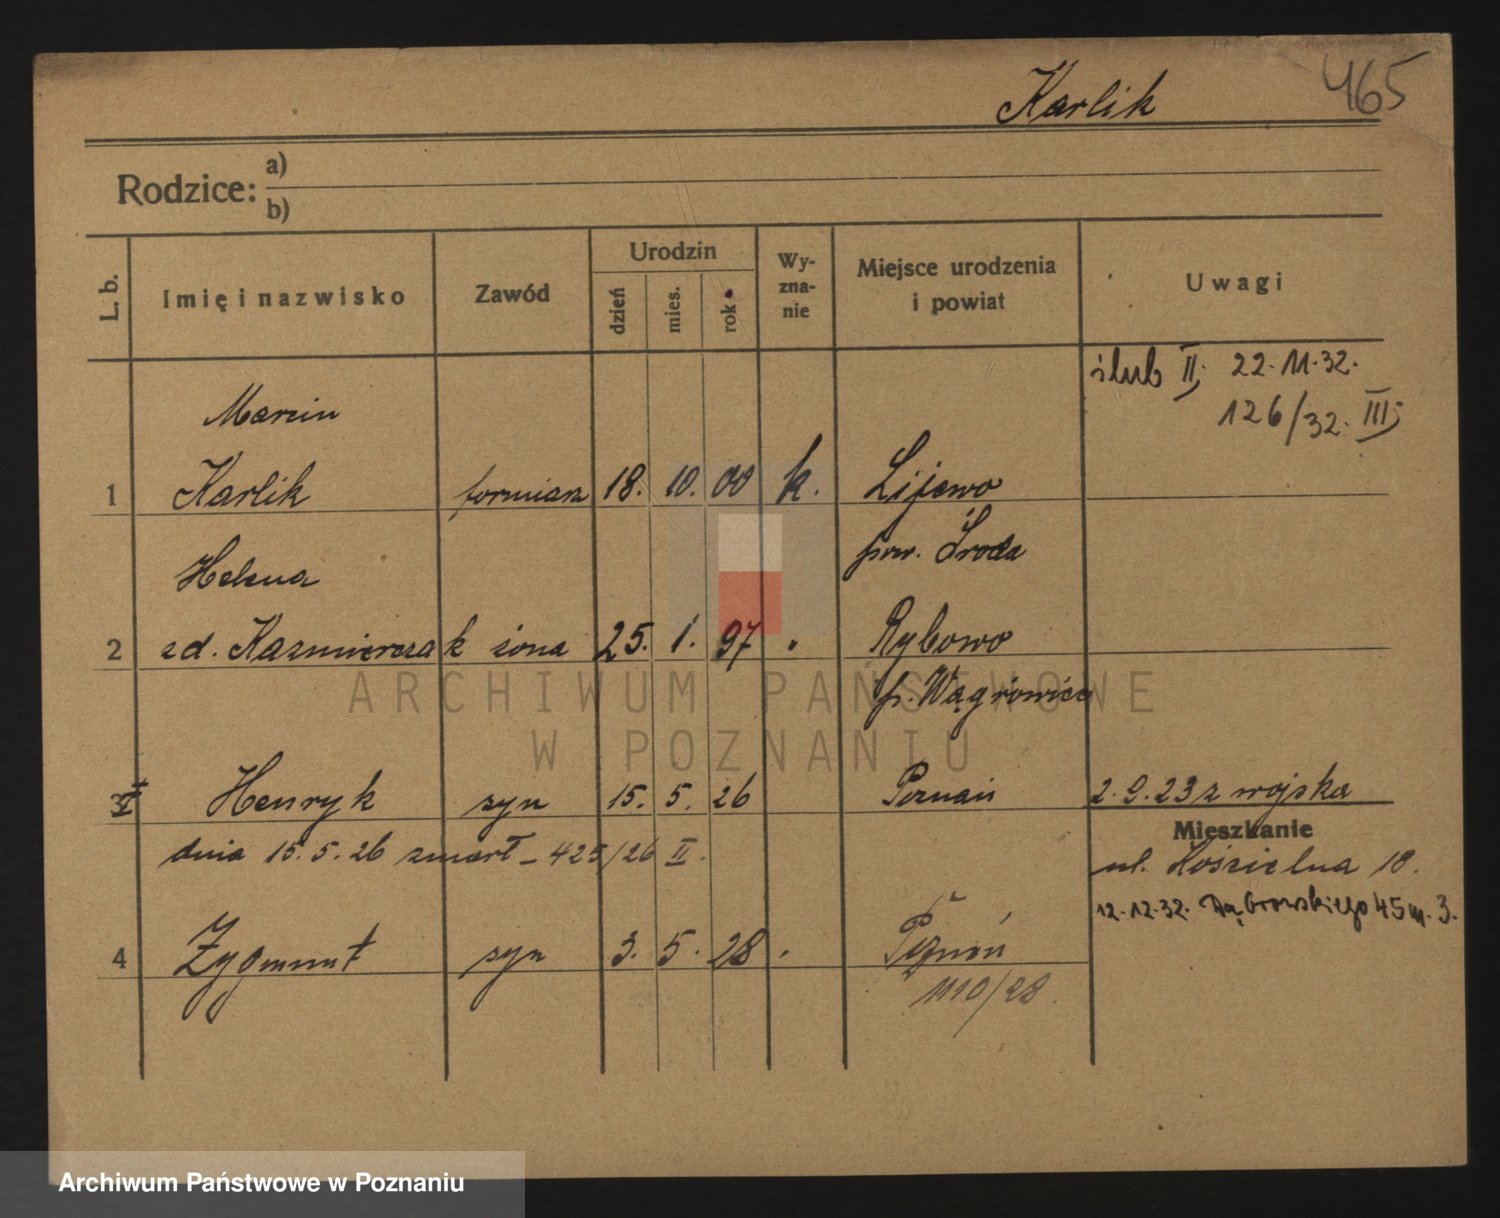 465
Karlik
Rodzice: a)
b)
L. b. Imię i nazwisko Zawód Urodzin dzień mies. rok Wy-zna-nie Miejsce urodzenia i powiat Uwagi
ślub II, 22.11.32.
126/32. III,
Marcin
1 Karlik formiarz 18. 10. 00 k. Lijewo
pow. Środa
Helena
2 zd. Kazmierczak żona 25. 1. 97 " Rybowo
p. Wągrowiec
3 Henryk syn 15. 5. 26 Poznań 2.9.23 z wojska
Mieszkanie
dnia 15.5.26 zmarł - 425/26 II. ul. Kościelna 18.
12.12.32. Dąbrowskiego 45 m. 3.
4 Zygmunt syn 3. 5. 28 " Poznań
1110/28.
ARCHIWUM PAŃSTWOWE
W POZNANIU
Archiwum Państwowe w Poznaniu